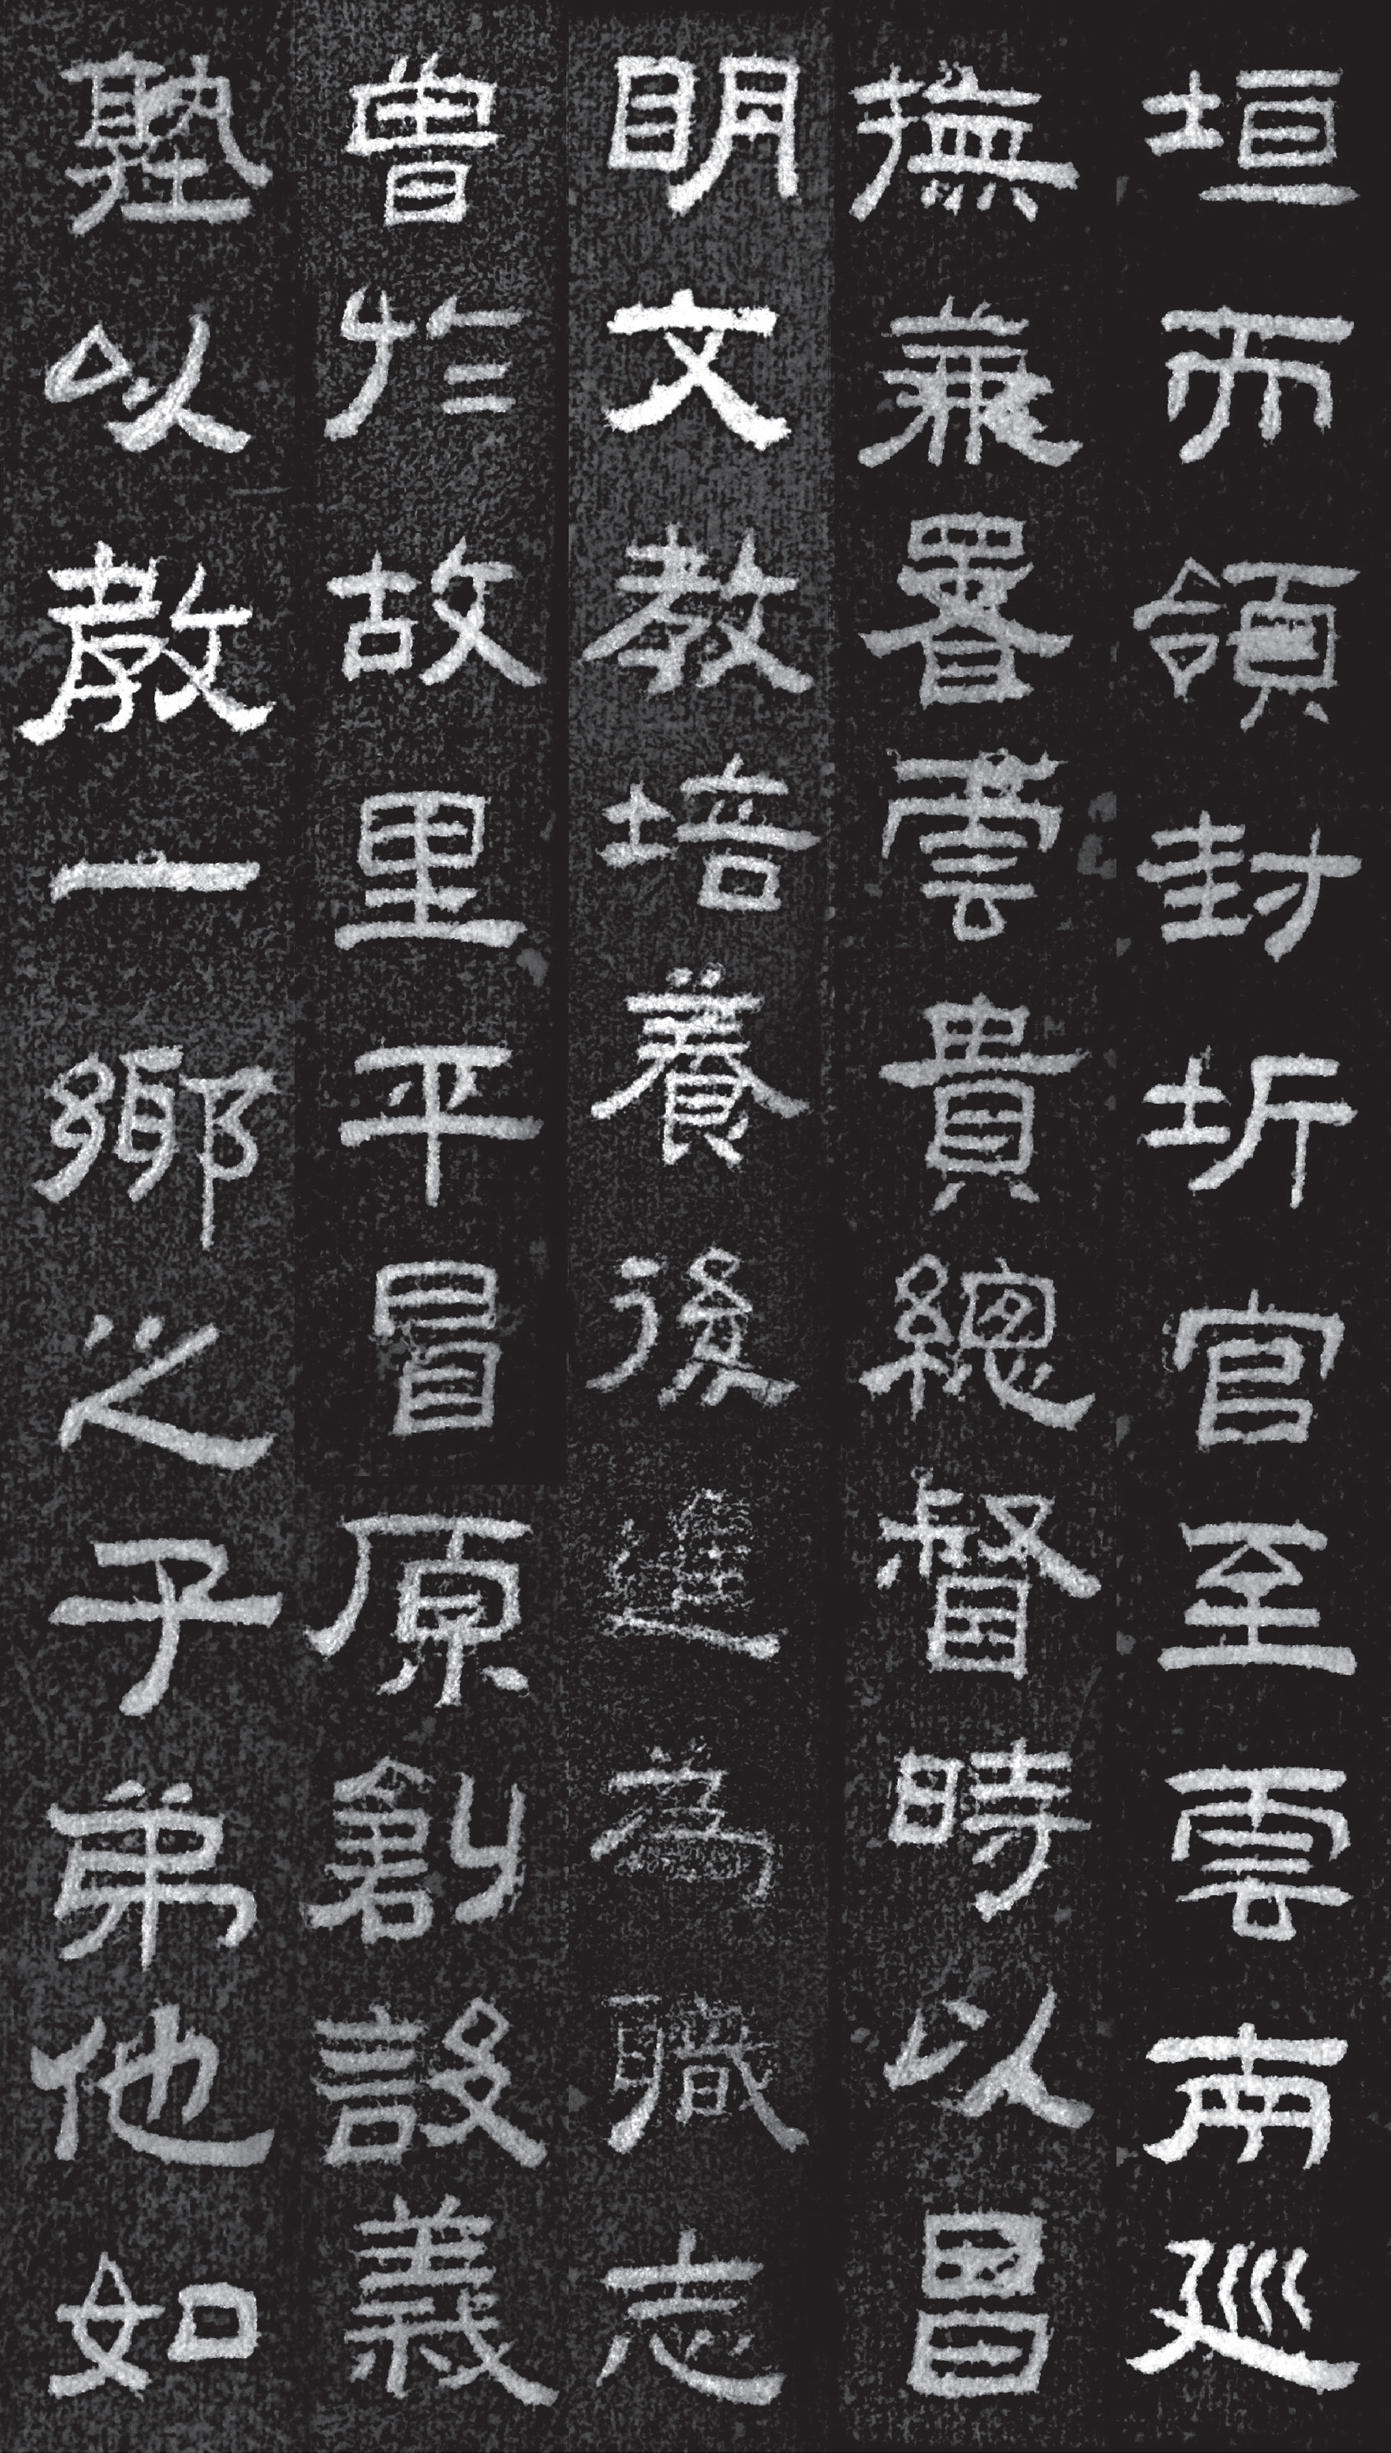 垣而領封圻官至雲南巡
撫兼署雲貴總督時以昌
明文教培養後進為職志
曾於故里平昌原創設義
塾以教一鄉之子弟他如